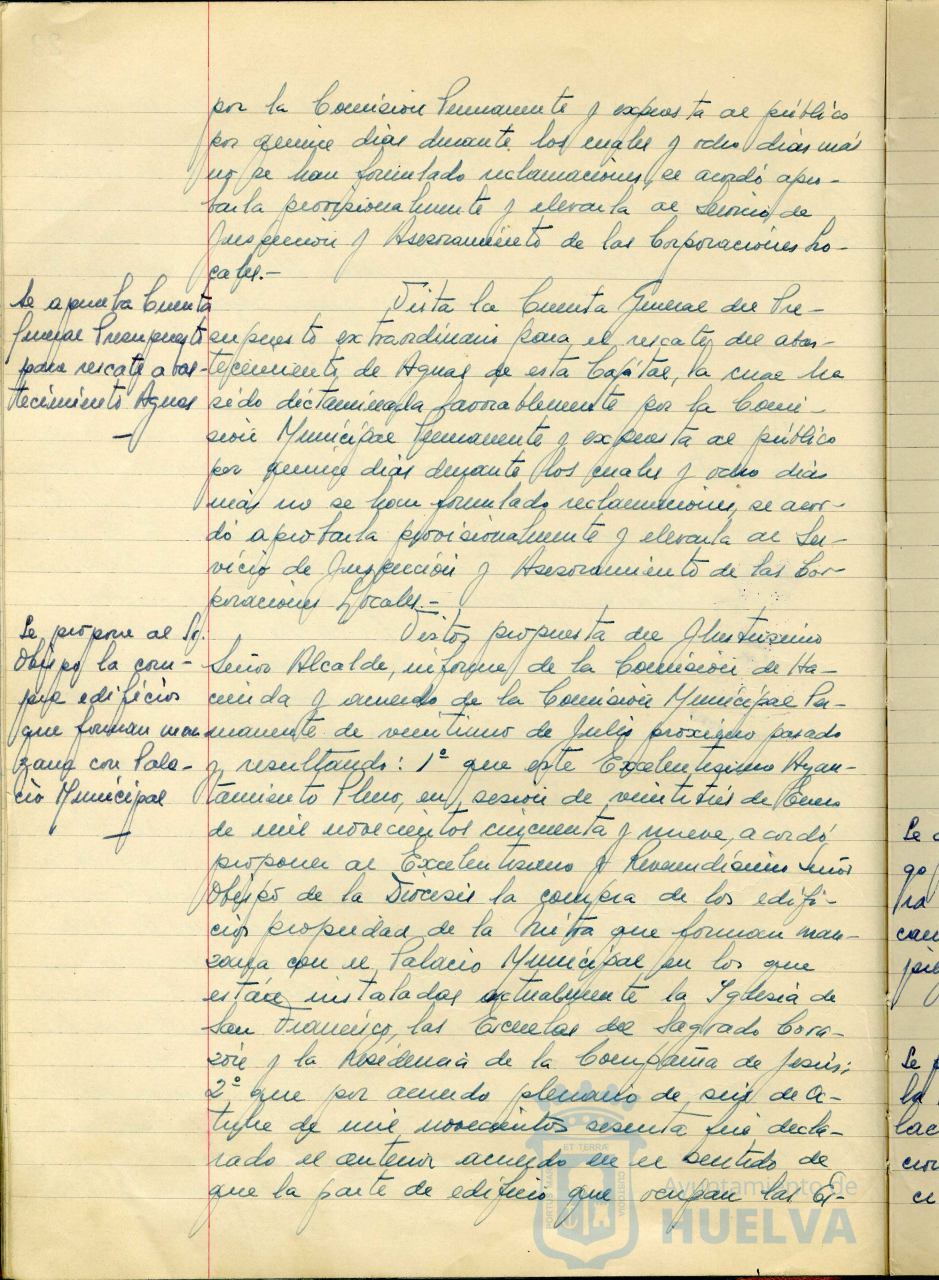 por la Comisión Permanente y expuesta al público
por quince días durante los cuales y ocho días más
no se han formulado reclamaciones, se acordó apro-
barla provisionalmente y elevarla al Servicio de
Inspección y Asesoramiento de las Corporaciones Lo-
cales.-
Se aprueba Cuenta
General Presupuesto
para rescate abas-
tecimiento Aguas
Vista la Cuenta General del Pre-
supuesto extraordinario para el rescate del abas-
tecimiento de Aguas de esta Capital, la cual ha
sido dictaminada favorablemente por la Comi-
sión Municipal Permanente y expuesta al público
por quince días durante los cuales y ocho días
más no se han formulado reclamaciones, se acor-
dó aprobarla provisionalmente y elevarla al Ser-
vicio de Inspección y Asesoramiento de las Cor-
poraciones Locales.-
Se propone al Sr.
Obispo la com-
pra edificios
que forman man
zana con Pala-
cio Municipal
Vistos propuesta del Ilustrísimo
Señor Alcalde, informe de la Comisión de Ha-
cienda y acuerdo de la Comisión Municipal Per-
manente de veintiuno de Julio próximo pasado
y resultando: 1º que este Excelentísimo Ayun-
tamiento Pleno, en sesión de veintitrés de Enero
de mil novecientos cincuenta y nueve, acordó
proponer al Excelentísimo y Reverendísimo señor
Obispo de la Diócesis la compra de los edifi-
cios propiedad de la Mitra que forman man-
zana con el Palacio Municipal en los que
están instaladas actualmente la Iglesia de
San Francisco, las Escuelas del Sagrado Cora-
zón y la Residencia de la Compañía de Jesús;
2º que por acuerdo plenario de seis de Oc-
tubre de mil novecientos sesenta fue decla-
rado el anterior acuerdo en el sentido de
que la parte de edificio que ocupan las Es-
PORTUS MARIS
ET TERRAE
CUSTODIA
Ayuntamiento de
HUELVA